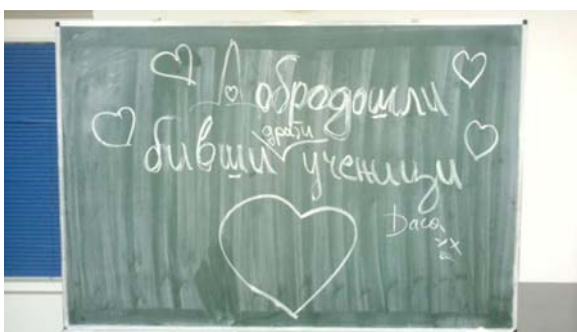 Добродошли
бивши драги ученици
Daca
xx